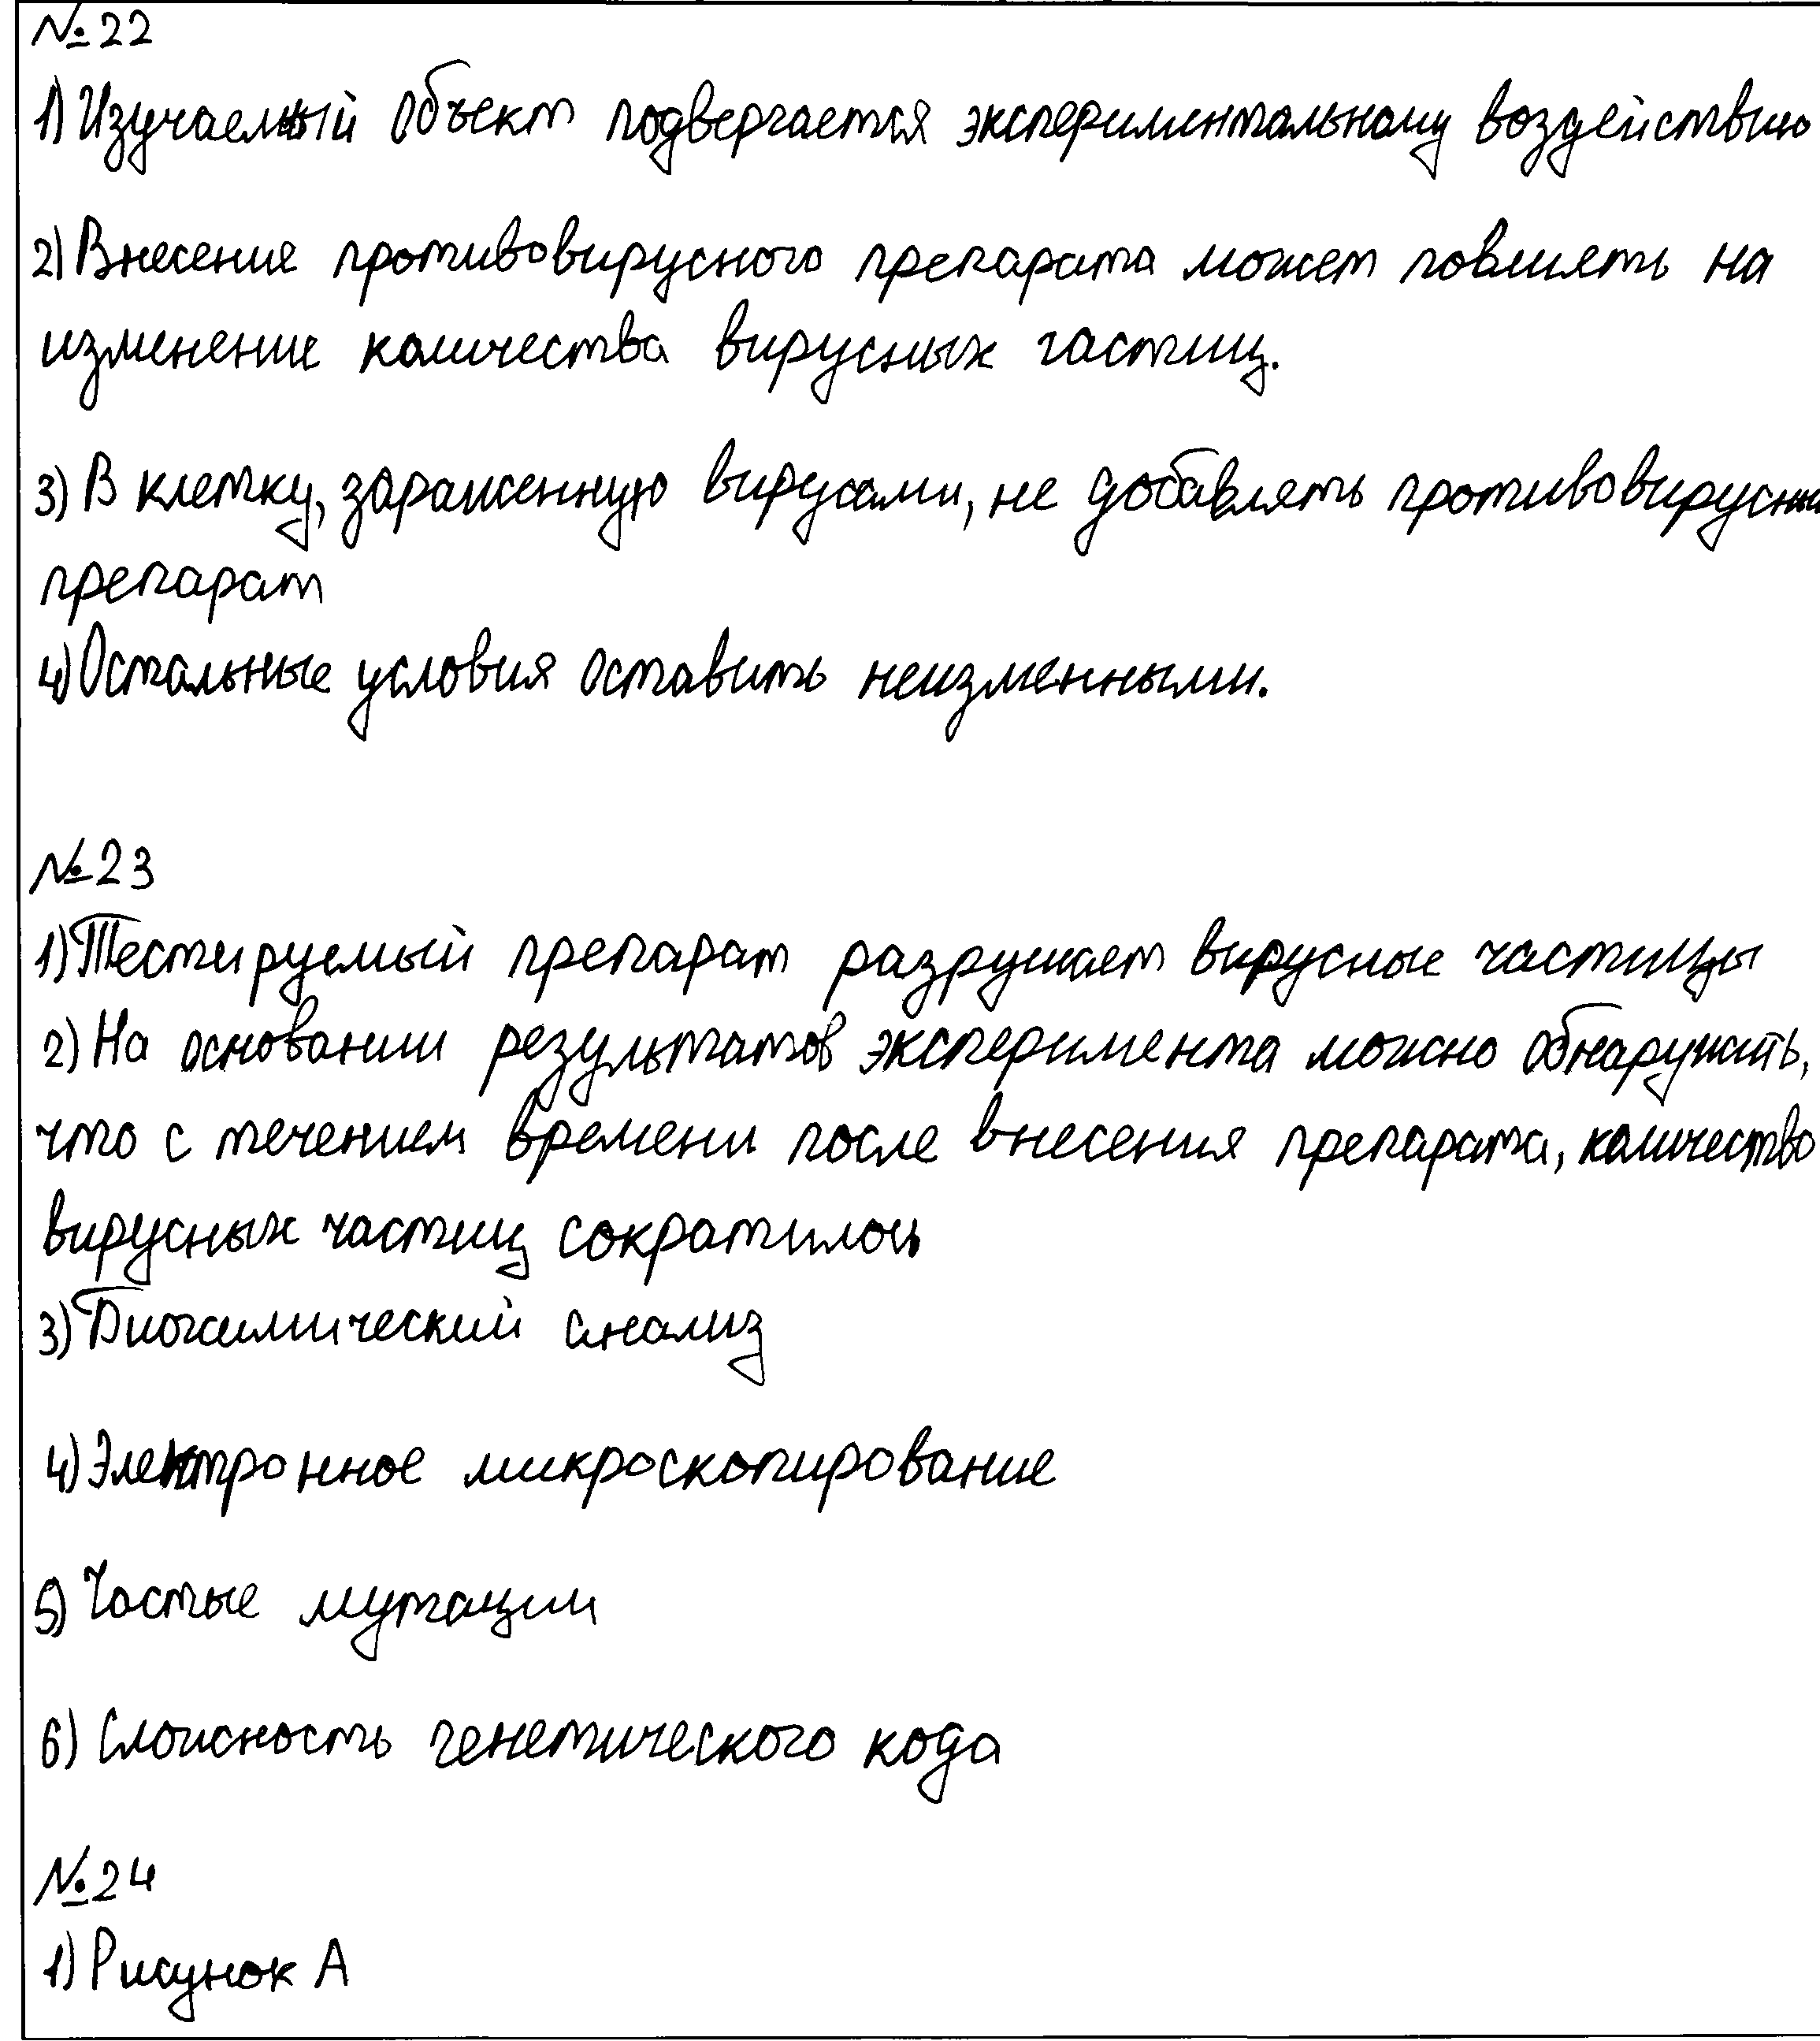 №22
1) Изучаемый объект подвергается экспериментальному воздействию
2) Внесение противовирусного препарата может повлиять на
изменение количества вирусных частиц.
3) В клетку, зараженную вирусами, не добавлять противовирусный
препарат
4) Остальные условия оставить неизменными.
№23
1) Тестируемый препарат разрушает вирусные частицы
2) На основании результатов эксперимента можно обнаружить,
что с течением времени после внесения препарата, количество
вирусных частиц сократилось
3) Биохимический анализ
4) Электронное микроскопирование
5) Частые мутации
6) Сложность генетического кода
№24
1) Рисунок А